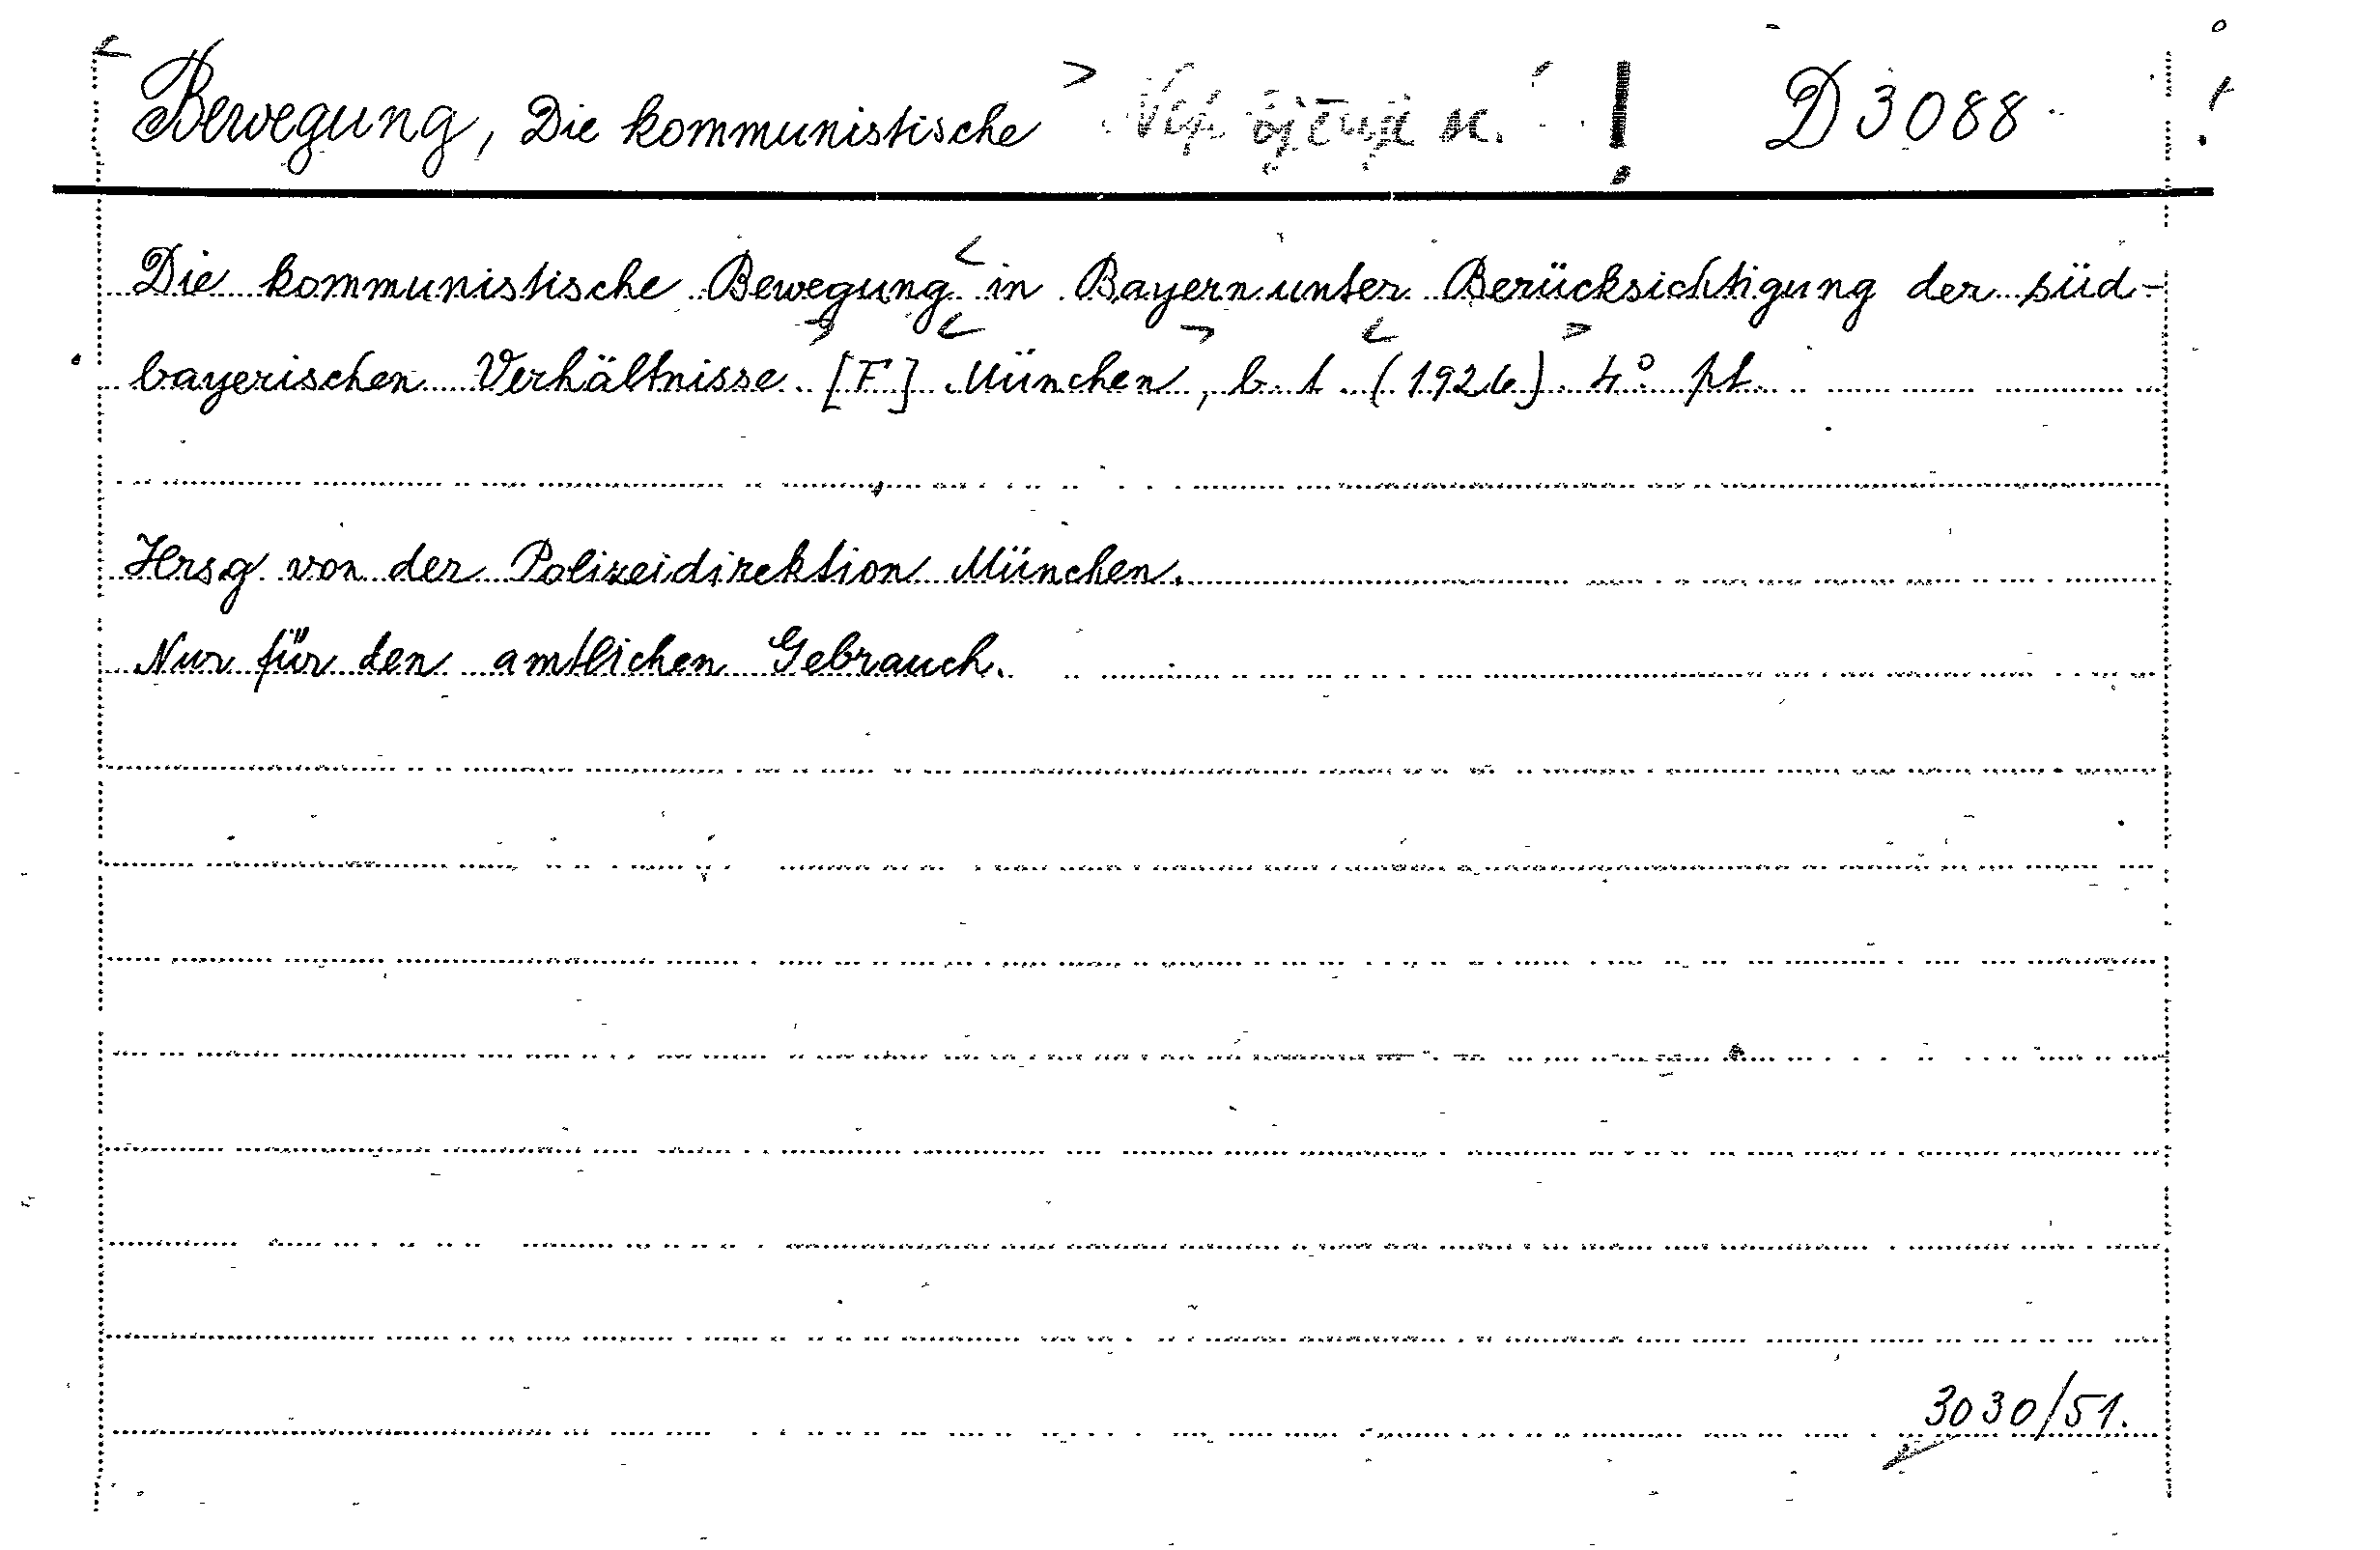 Bewegung, Die kommunistische > Nepůjčuje se. ! D 3088
Die kommunistische Bewegung < in Bayern unter Berücksichtigung der süd-
bayerischen Verhältnisse. > [F] < München, > b. t. < (1926) > 4° pt.
Hrsg von der Polizeidirektion München.
Nur für den amtlichen Gebrauch.
3030/51.